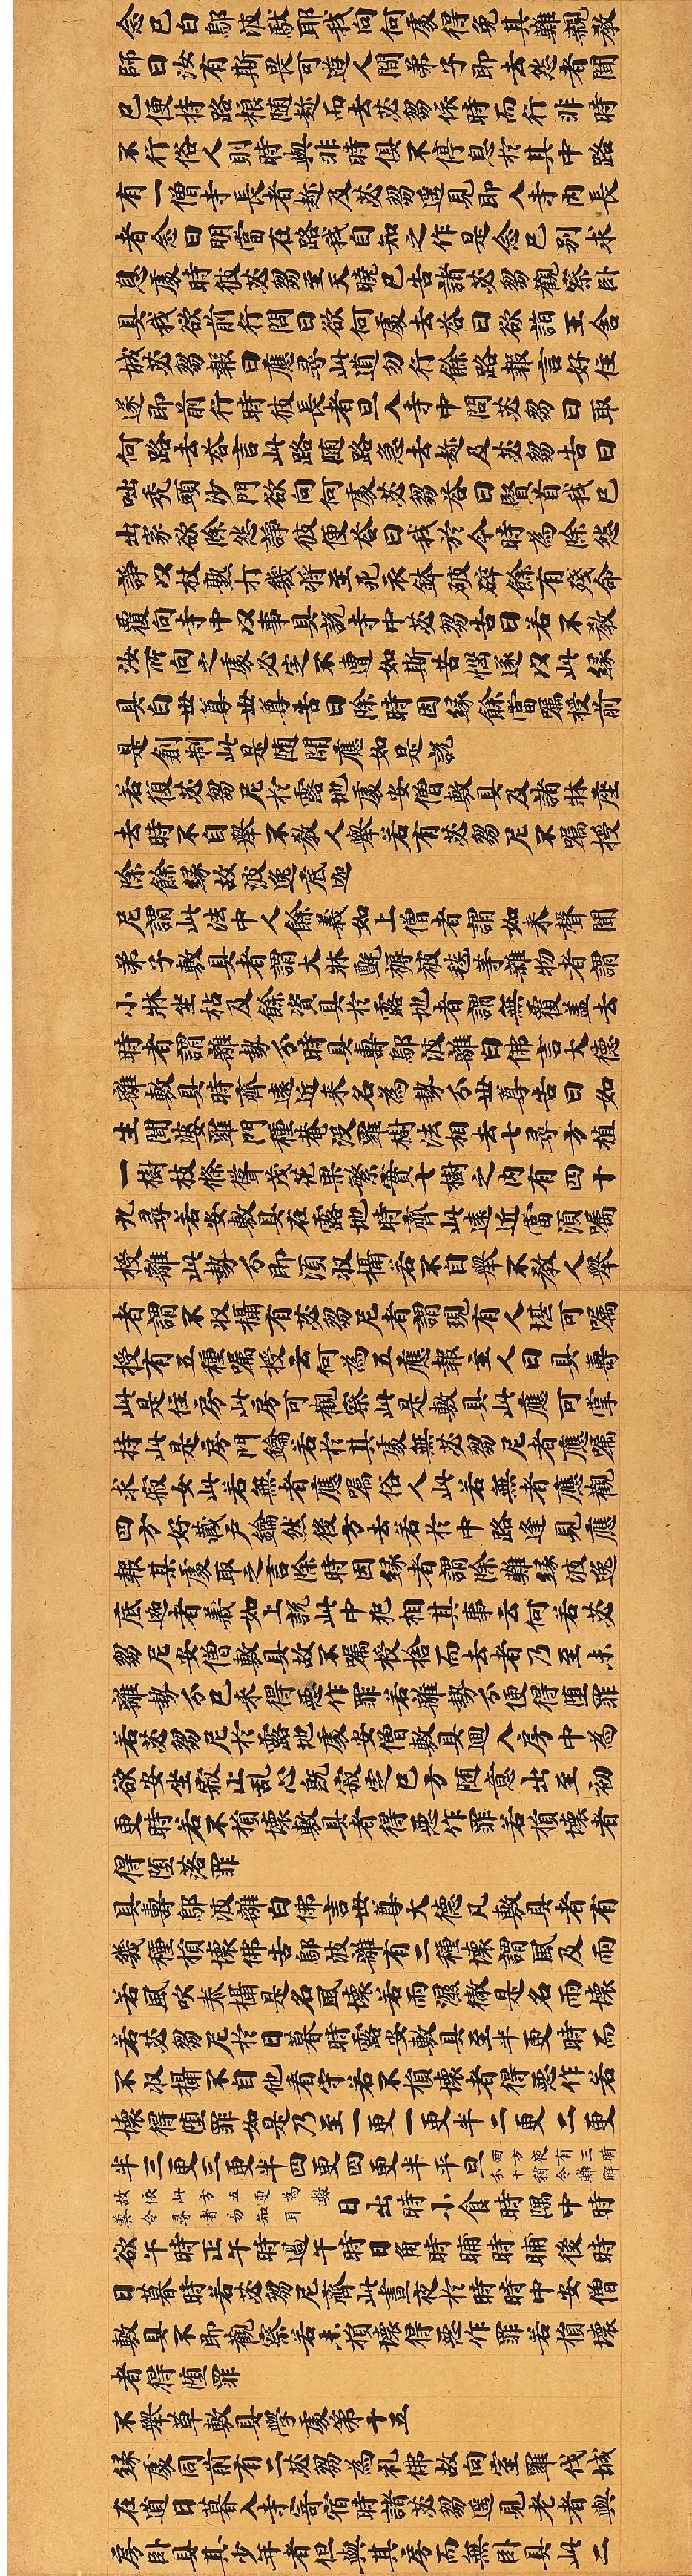 念已白鄔波馱耶我向何處得免其難親教
師曰汝有斯畏可遊人間弟子即去怨者聞
已便持路粮随趂而去苾芻依時而行非時
不行俗人則時與非時俱不停息於其中路
有一僧寺長者趂及苾芻遥見即入寺內長
者念曰明當在路我自知之作是念已別求
息處時彼苾芻至天曉已告諸苾芻觀察卧
具我欲前行問曰欲何處去荅曰欲詣王舍
城苾芻報曰應尋此道勿行餘路報言好住
遂即前行時彼長者旦入寺中問苾芻曰取
何路去荅言此路随路急去趂及苾芻告曰
咄秃頭沙門欲向何處苾芻荅曰賢首我已
出家欲除怨諍彼便荅曰我於今時為除怨
諍以杖熟打幾将至死衣鉢破碎餘有殘命
覆向寺中以事具說寺中苾芻告曰若不教
汝所向之處必定不遭如斯苦惱遂以此縁
具白世尊世尊告曰除時因縁餘當囑授前
是創制此是随開應如是說
若復苾芻尼於露地處安僧敷具及諸牀座
去時不自舉不教人舉若有苾芻尼不囑授
除餘縁故波逸底迦
尼謂此法中人餘義如上僧者謂如来聲聞
弟子敷具者謂大牀氈褥被毯等雜物者謂
小牀坐枯及餘資具於露地者謂無覆蓋去
時者謂離勢分時具壽鄔波離白佛言大德
離敷具時齊遠近来名為勢分世尊告曰如
生聞婆羅門種菴没羅樹法相去七尋方植
一樹枝條聳茂花果繁實七樹之內有四十
九尋若安敷具在露地時齊此遠近當須囑
授離此勢分即須收攝若不自舉不教人舉
者謂不收攝有苾芻尼者謂現有人堪可囑
授有五種囑授云何為五應報主人曰具壽
此是住房此房可觀察此是敷具此應可掌
持此是房門鑰若於其處無苾芻尼者應囑
求寂女此若無者應囑俗人此若無者應觀
四方好藏户鑰然後方去若於中路逢見應
報某處取之言除時因縁者謂除難縁波逸
底迦者義如上說此中犯相其事云何若苾
芻尼安僧敷具故不囑授捨而去者乃至未
離勢分已来得惡作罪若離勢分便得墮罪
若苾芻尼於露地處安僧敷具迴入房中為
欲安坐寂止乱心既寂定已方随意出至初
更時若不損壞敷具者得惡作罪若損壞者
得墮落罪
具壽鄔波離白佛言世尊大德凡敷具者有
幾種損壞佛告鄔波離有二種壞謂風及雨
若風吹卷攝是名風壞若雨濕徹是名雨壞
若苾芻尼於日暮時露安敷具至半更時而
不收攝不自他看守若不損壞者得惡作若
壞得墮罪如是乃至一更一更半二更二更
半三更三更半四更四更半平旦
日出時小食時隅中時
欲午時正午時過午時日角時晡時晡後時
日暮時若苾芻尼齊此晝夜於時時中安僧
敷具不即觀察若未損壞得惡作罪若損壞
者得墮罪
不舉草敷具學處第十五
緣處同前有二苾芻為礼佛故向室羅伐城
在道日暮入寺寄宿時諸苾芻遥見老者與
房卧具其少年者但與其房而無卧具此二